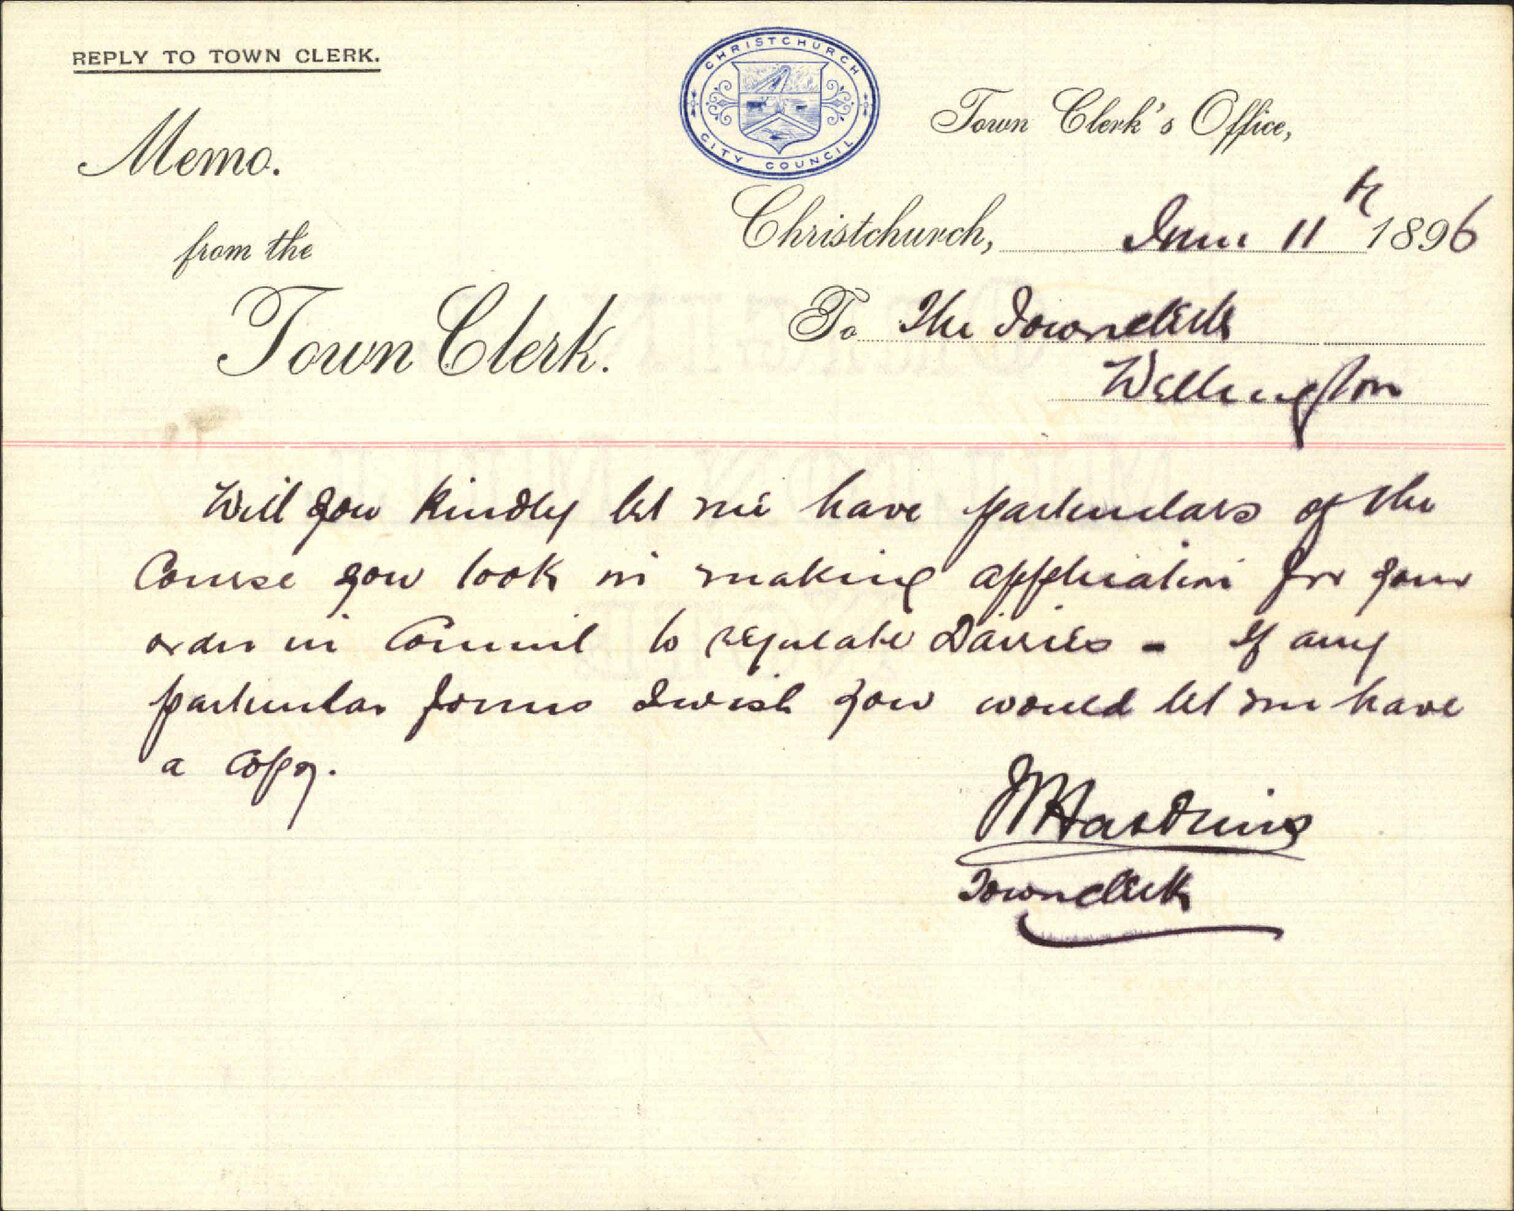 REPLY TO TOWN CLERK.
CHRISTCHURCH
CITY COUNCIL
Memo.
from the
Town Clerk.
Town Clerk's Office,
Christchurch, June 11th 1896
To The Townclerk
Wellington
Will you kindly let me have particulars of the
Course you took in making application for your
order in Council to regulate Dairies - If any
particular forms I wish you would let me have
a copy.
Haskins
Townclerk